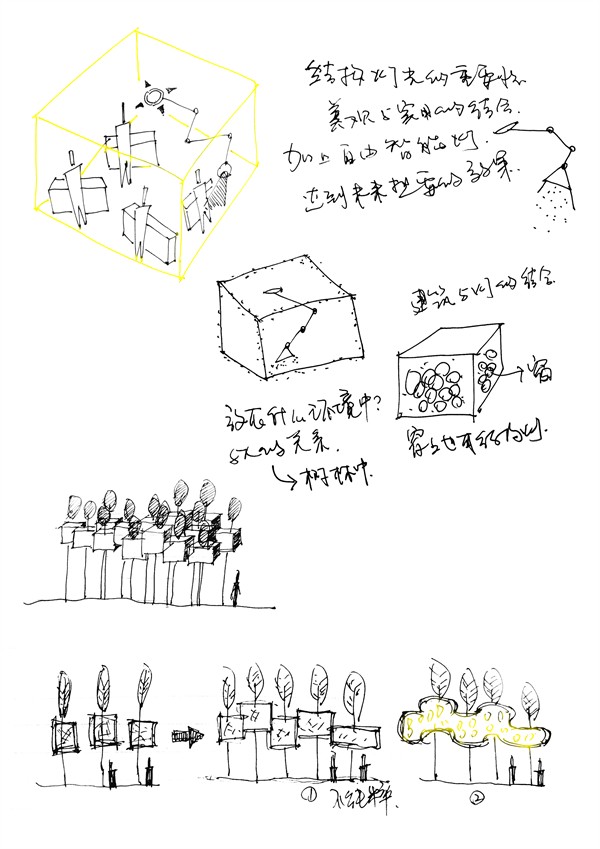 结构灯光的重要性.
美观与实用的结合.
加上自由智能灯.
达到未来想要的效果.
建筑与灯的结合.
窗
窗上也有结构灯.
放在什么环境中?
与人的关系.
树林中.
① 不纯粹.
②